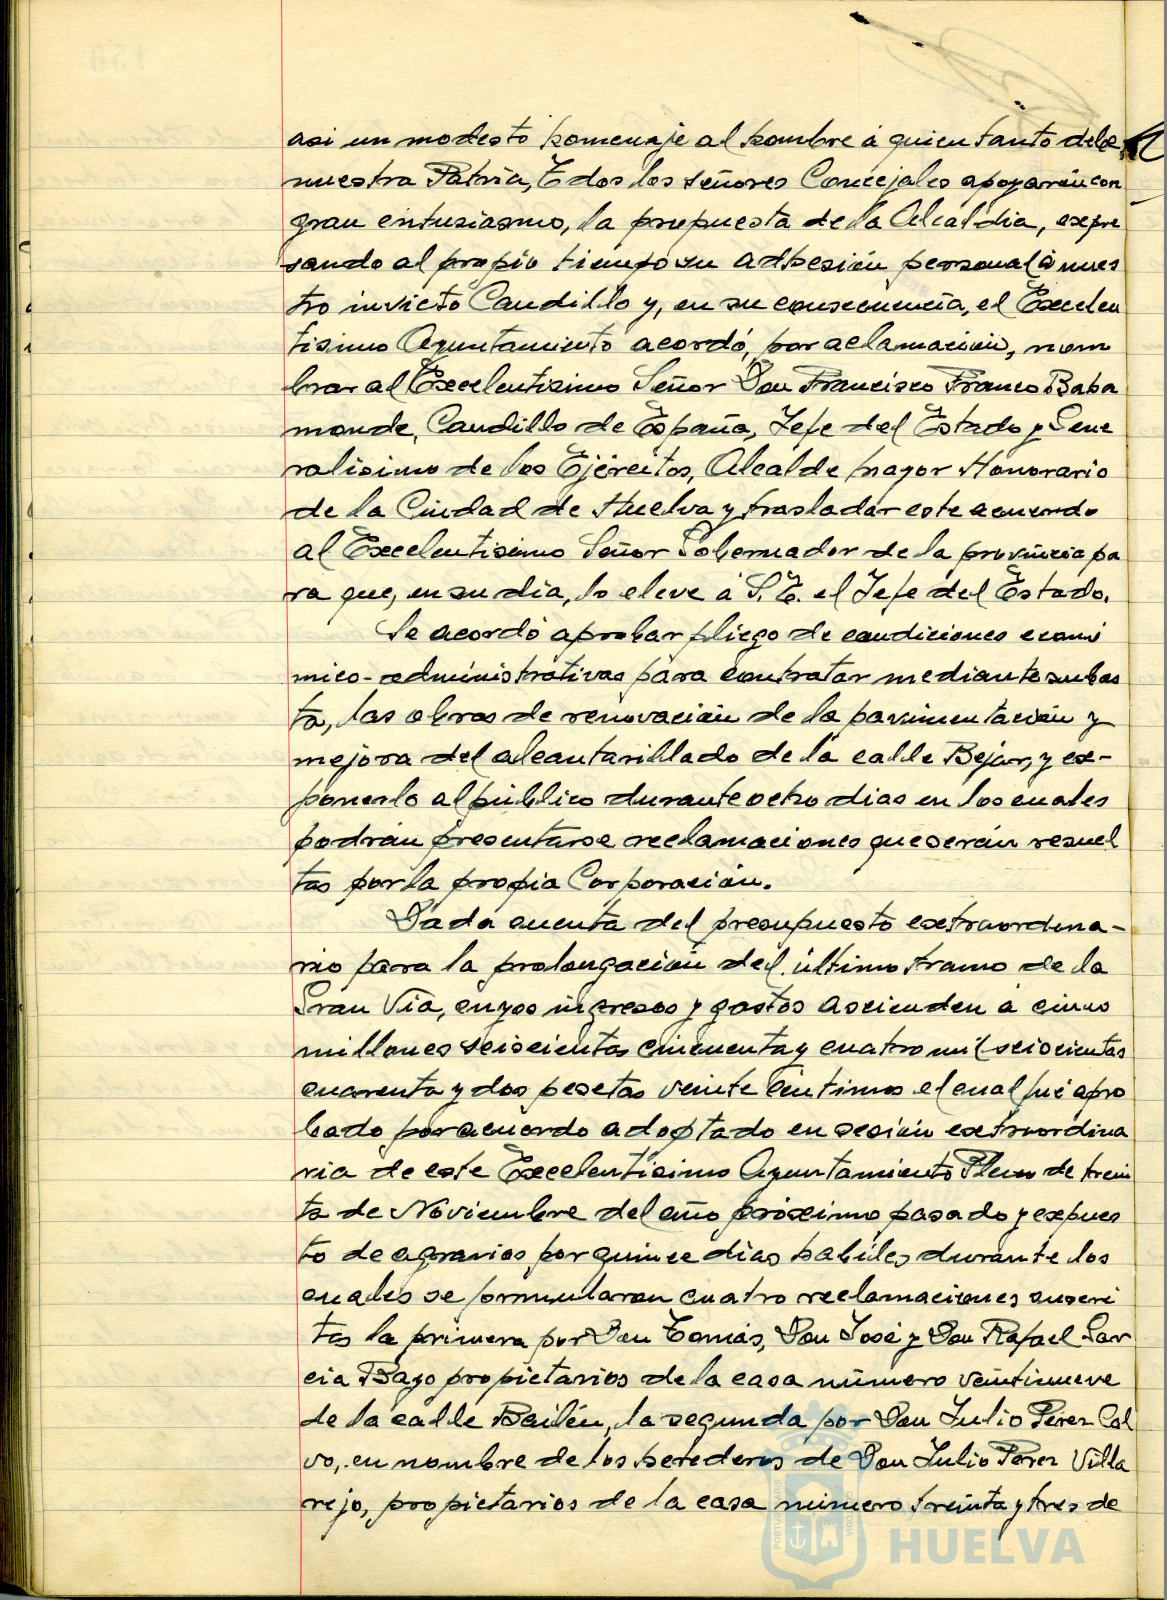 asi un modesto homenaje al hombre á quien tanto debe
nuestra Patria, Todos los señores Concejales apoyarón con
gran entusiasmo, la propuesta de la Alcaldia, expre
sando al propio tiempo su adhesión personal á nues
tro invicto Caudillo y, en su consecuencia, el Excelen
tisimo Ayuntamiento acordó, por aclamación, nom
brar al Excelentisimo Señor Don Francisco Franco Baha
monde, Caudillo de España, Jefe del Estado y Gene
ralisimo de los Ejércitos, Alcalde mayor Honorario
de la Ciudad de Huelva y trasladar este acuerdo
al Excelentisimo Señor Gobernador de la provincia pa
ra que, en su dia, lo eleve á S.E. el Jefe del Estado.
Se acordó aprobar pliego de condiciones econó
mico-administrativas para contratar mediante subas
ta, las obras de renovación de la pavimentación y
mejora del alcantarillado de la calle Bejar, y ex-
ponerlo al público durante ocho dias en los cuales
podrán presentarse reclamaciones que serán resuel
tas por la propia Corporación.
Dada cuenta del presupuesto extraordina-
rio para la prolongación del último tramo de la
Gran Via, cuyos ingresos y gastos ascienden á cinco
millones seiscientas cincuenta y cuatro mil seiscientas
cuarenta y dos pesetas veinte centimos el cual fué apro
bado por acuerdo adoptado en sesión extraordina
ria de este Excelentisimo Ayuntamiento Pleno de trein
ta de Noviembre del año próximo pasado y expues
to de agravios por quince dias habiles durante los
cuales se formularon cuatro reclamaciones suscri
tas la primera por Don Tomás, Don José y Don Rafael Gar
cia Bayo propietarios de la casa número veintinueve
de la calle Bailén, la segunda por Don Julio Perez Cal
vo, en nombre de los herederos de Don Julio Perez Villa
rejo, propietarios de la casa número treinta y tres de
HUELVA